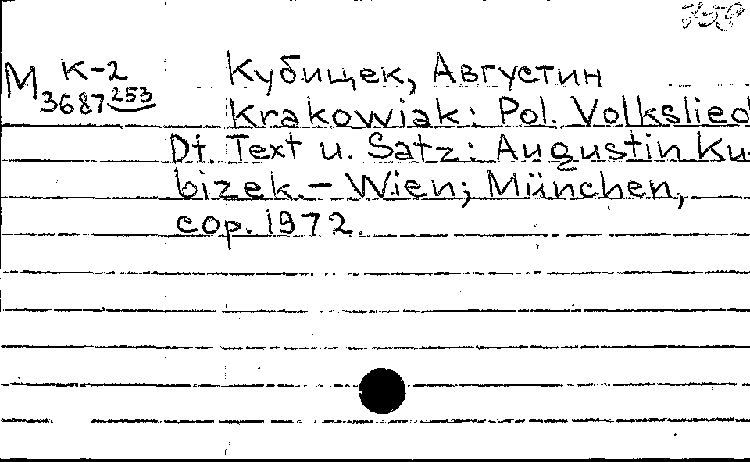 758
M K-2
3687 253
Кубицек, Августин
Krakowiak: Pol. Volkslied
Dt. Text u. Satz: Augustin Ku-
bizek. – Wien; München,
cop. 1972.